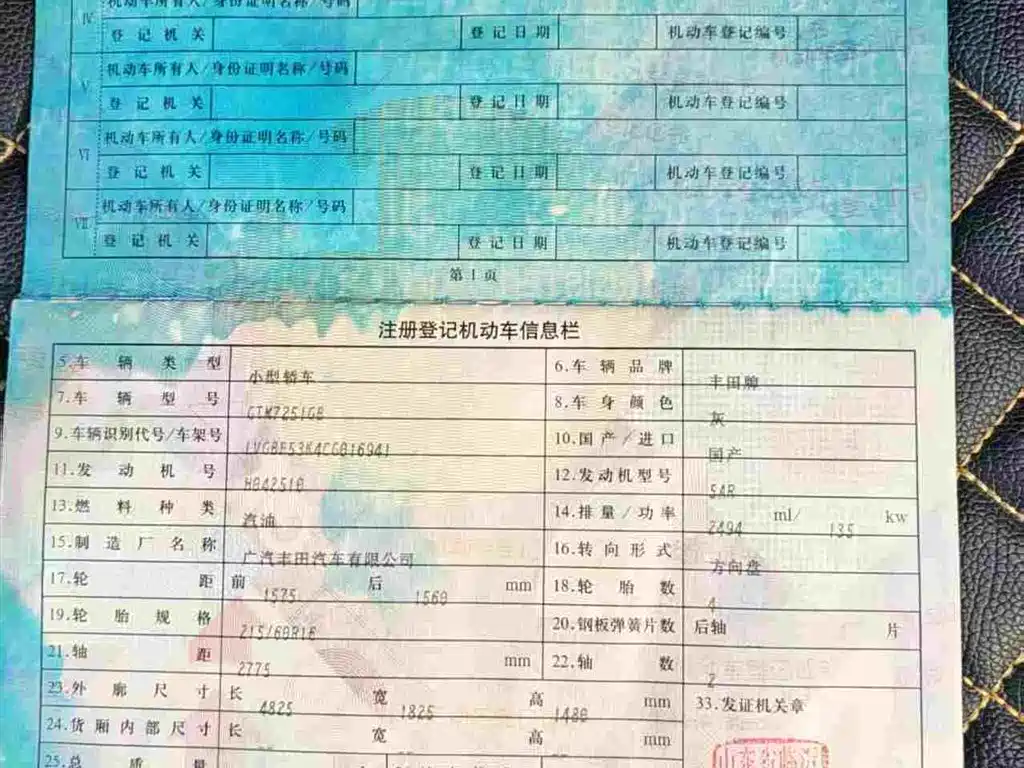 IV 机动车所有人/身份证明名称/号码
登记机关 登记日期 机动车登记编号
V 机动车所有人/身份证明名称/号码
登记机关 登记日期 机动车登记编号
VI 机动车所有人/身份证明名称/号码
登记机关 登记日期 机动车登记编号
VII 机动车所有人/身份证明名称/号码
登记机关 登记日期 机动车登记编号
第1页
注册登记机动车信息栏
5.车辆类型 小型轿车 6.车辆品牌 丰田牌
7.车辆型号 GTM7251GB 8.车身颜色 灰
9.车辆识别代号/车架号 LVGBF53K4CG016941 10.国产/进口 国产
11.发动机号 12.发动机型号 5AR
13.燃料种类 汽油 14.排量/功率 2494 ml/ 135 kw
15.制造厂名称 广汽丰田汽车有限公司 16.转向形式 方向盘
17.轮距 前 1575 后 1560 mm 18.轮胎数 4
19.轮胎规格 215/60R16 20.钢板弹簧片数 后轴 片
21.轴距 2775 mm 22.轴数 2
23.外廓尺寸 长 4825 宽 1825 高 1480 mm 33.发证机关章
24.货厢内部尺寸 长 宽 高 mm
25.总质量